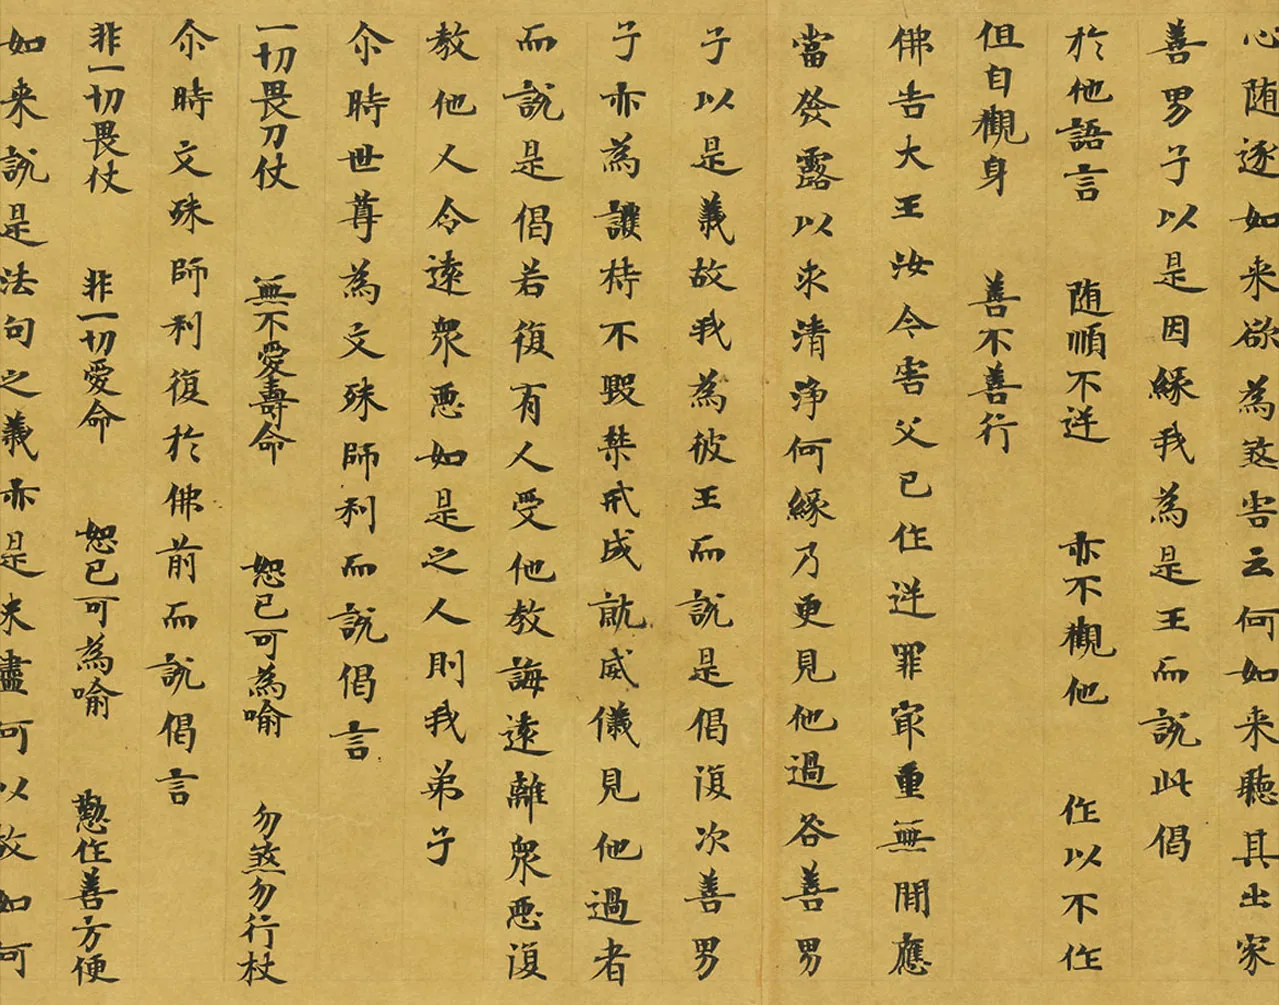 心随逐如来欲為煞害云何如来聽其出家
善男子以是因緣我為是王而說此偈
於他語言 随順不逆 亦不觀他 作以不作
但自觀身 善不善行
佛告大王汝今害父已作逆罪㝡重無間應
當發露以求清淨何緣乃更見他過咎善男
子以是義故我為彼王而說是偈復次善男
子亦為護持不毀禁戒成就威儀見他過者
而說是偈若復有人受他教誨遠離眾惡復
教他人令遠眾惡如是之人則我弟子
尒時世尊為文殊師利而說偈言
一切畏刀仗 無不愛壽命 恕己可為喻 勿煞勿行杖
尒時文殊師利復於佛前而說偈言
非一切畏仗 非一切愛命 恕己可為喻 懃作善方便
如来說是法句之義亦是未盡何以故如何